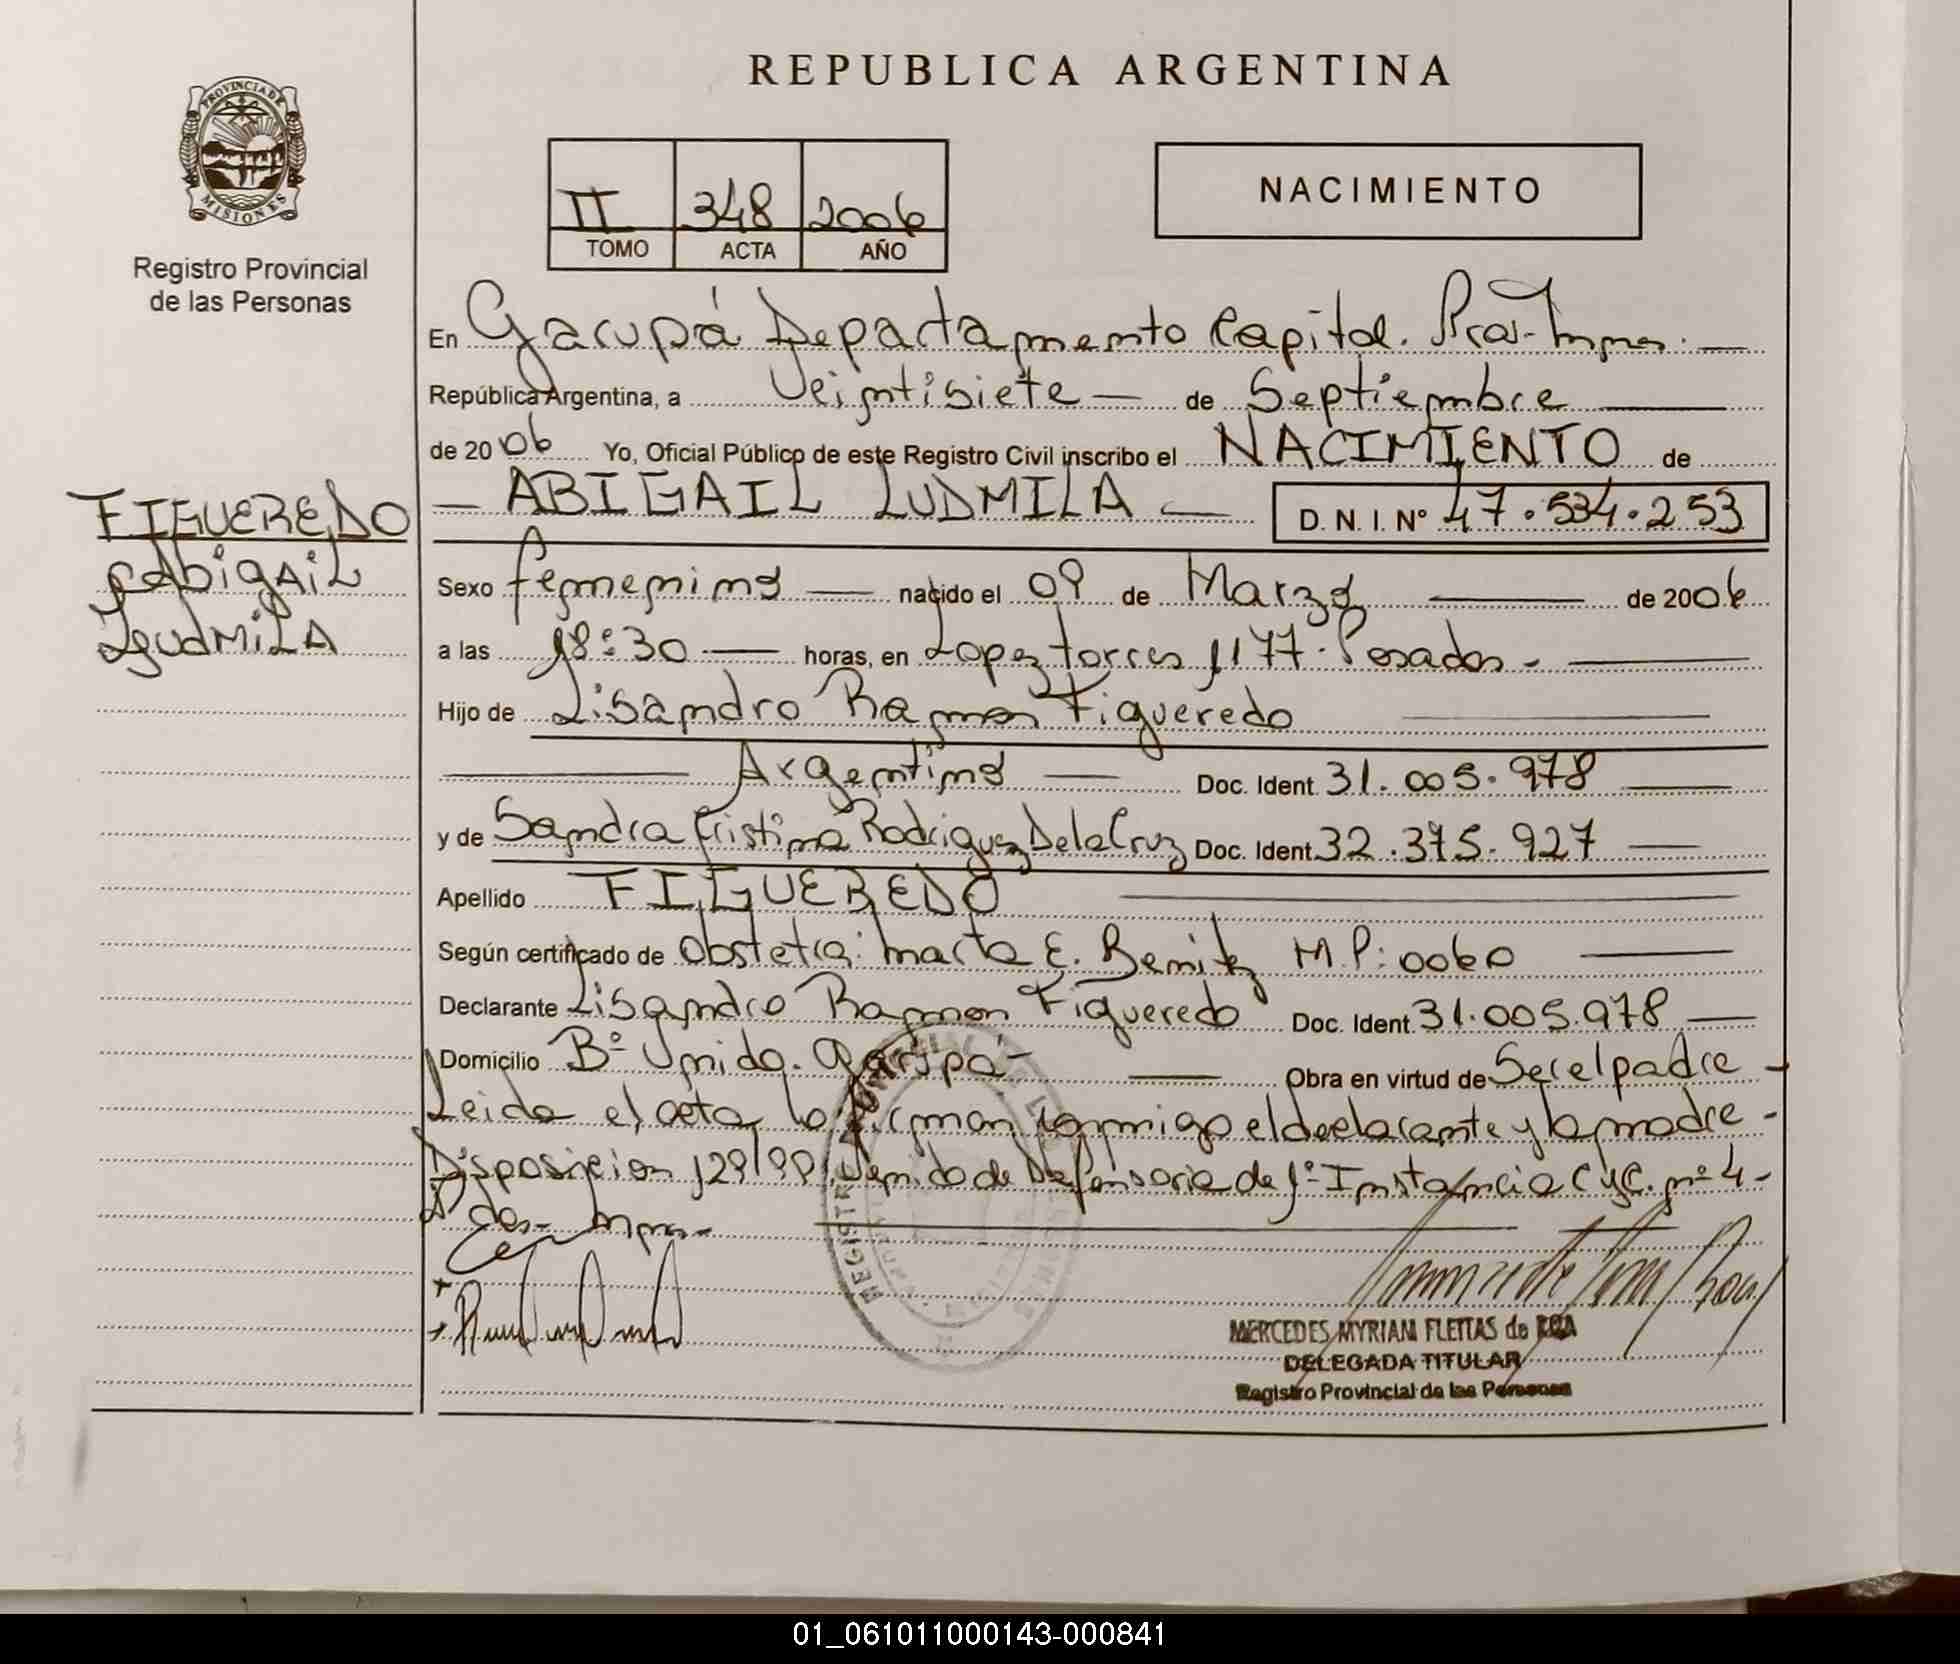 REPUBLICA ARGENTINA
PROVINCIA DE
MISIONES
Registro Provincial
de las Personas
II 348 2006
TOMO ACTA AÑO
NACIMIENTO
En Garupá Departamento Capital.
República Argentina, a Veintisiete de Septiembre
de 2006 Yo, Oficial Público de este Registro Civil inscribo el NACIMIENTO de
ABIGAIL LUDMILA D. N. I. Nº 47.534.253
FIGUEREDO
Abigail
Ludmila
Sexo femenino nacido el 09 de Marzo de 2006
a las 18:30 horas, en Lopez torres 1177. Posadas -
Hijo de Lisandro Ramon Figueredo
Argentino Doc. Ident. 31.005.978
y de Sandra Cristina Rodriguez De la Cruz Doc. Ident. 32.375.927
Apellido FIGUEREDO
Según certificado de Obstetra: Marta E. Benitez M.P: 0060
Declarante Lisandro Ramon Figueredo Doc. Ident. 31.005.978
Domicilio Bº Unido. Garupá - Obra en virtud de Ser el padre -
Leida el acta la firman conmigo el declarante y la madre -
Disposicion 129/99. Venido de Defensoria de 1º Instancia C y C. nº 4 -
MERCEDES MYRIAM FLEITAS de ROA
DELEGADA TITULAR
Registro Provincial de las Personas
01_061011000143-000841